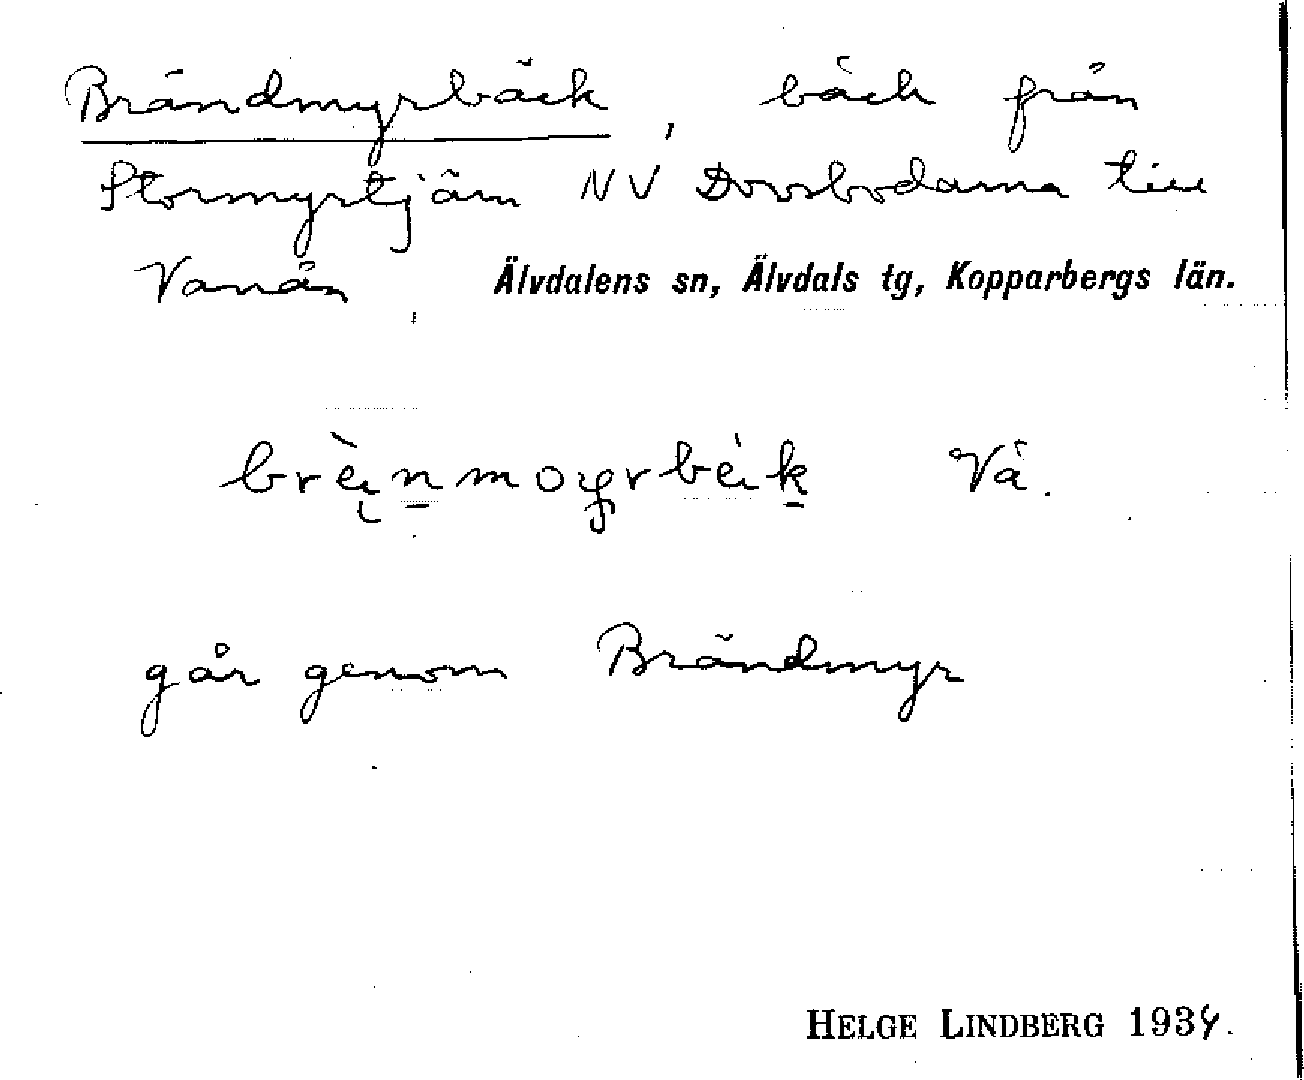 Brändmyrbäck, bäck från
Stormyrtjärn NV Dovsbodarna till
Vanån Älvdalens sn, Älvdals tg, Kopparbergs län.
Vå.
går genom Brändmyr
HELGE LINDBERG 1934.